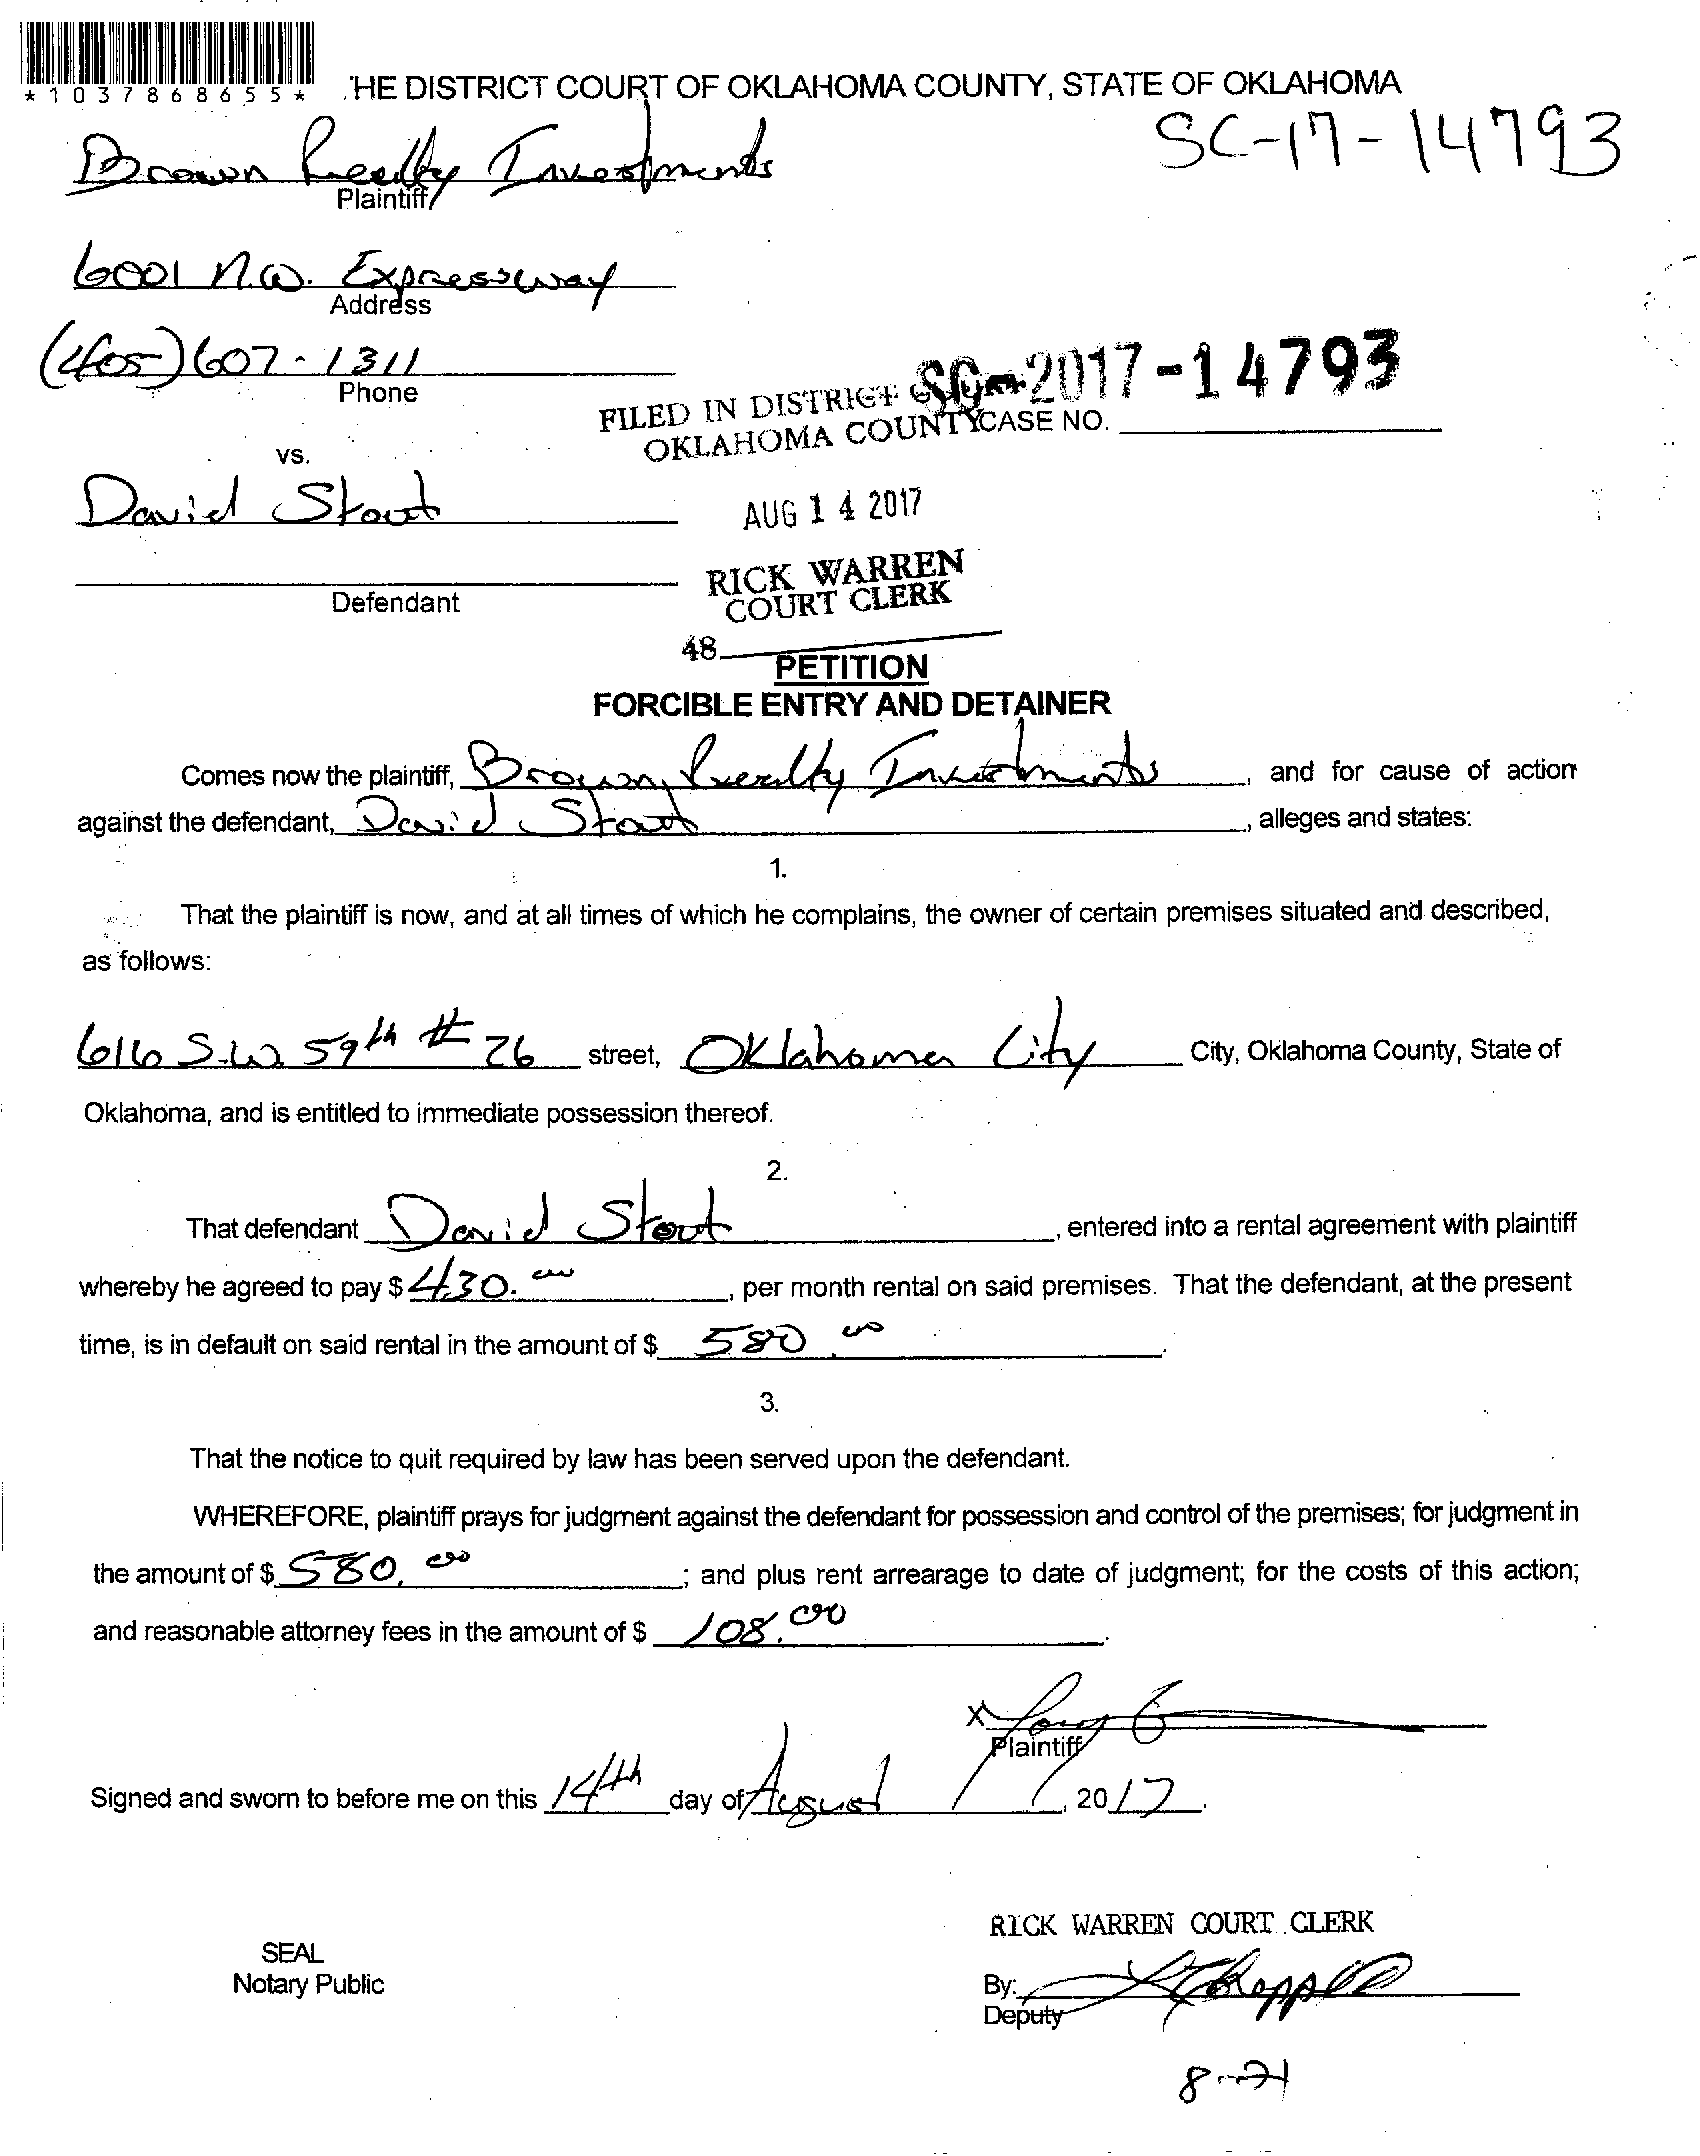 *1037868655*
HE DISTRICT COURT OF OKLAHOMA COUNTY, STATE OF OKLAHOMA
SC-17-14793
Brown Realty Investments
Plaintiff
6001 N.W. Expressway
Address
(405) 607-1311
Phone
SC-2017-14793
FILED IN DISTRICT
OKLAHOMA COUNTY CASE NO.
vs.
David Stout
AUG 14 2017
RICK WARREN
COURT CLERK
Defendant
48
PETITION
FORCIBLE ENTRY AND DETAINER
Comes now the plaintiff, Brown Realty Investments, and for cause of action
against the defendant, David Stout, alleges and states:
1.
That the plaintiff is now, and at all times of which he complains, the owner of certain premises situated and described,
as follows:
616 S.W. 59th # 26 street, Oklahoma City City, Oklahoma County, State of
Oklahoma, and is entitled to immediate possession thereof.
2.
That defendant David Stout, entered into a rental agreement with plaintiff
whereby he agreed to pay $ 430.00, per month rental on said premises. That the defendant, at the present
time, is in default on said rental in the amount of $ 580.00.
3.
That the notice to quit required by law has been served upon the defendant.
WHEREFORE, plaintiff prays for judgment against the defendant for possession and control of the premises; for judgment in
the amount of $ 580.00; and plus rent arrearage to date of judgment; for the costs of this action;
and reasonable attorney fees in the amount of $ 108.00.
X
Plaintiff
Signed and sworn to before me on this 14th day of August, 2017.
RICK WARREN COURT CLERK
SEAL
Notary Public
By:
Deputy
8-21